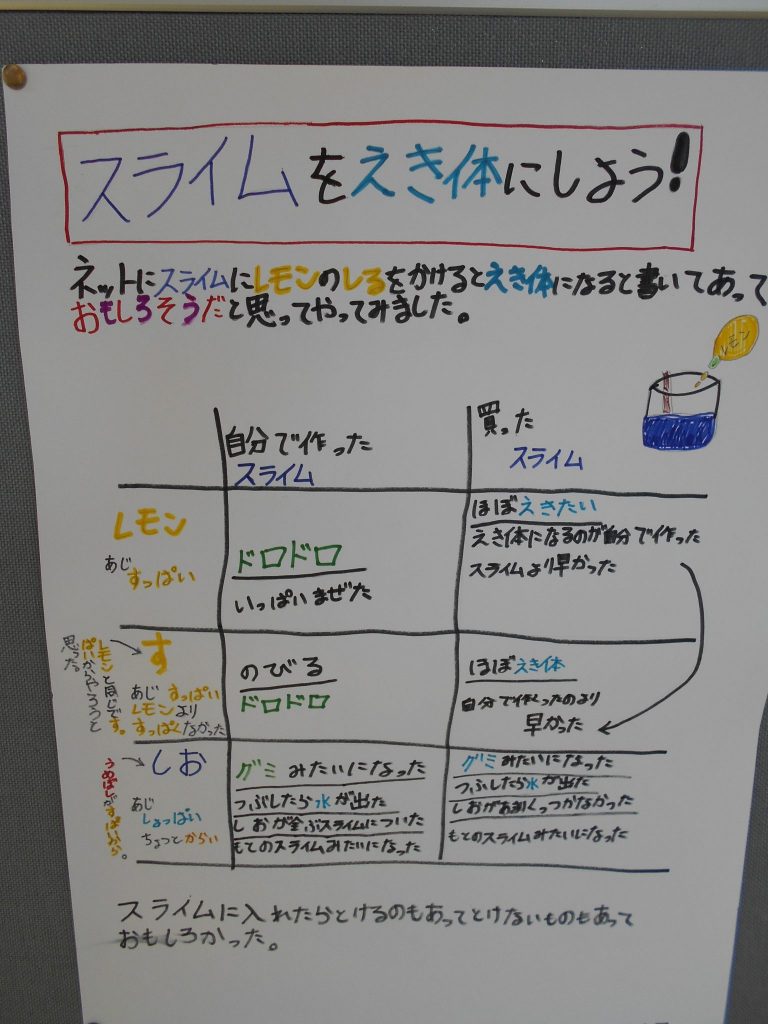 スライムをえき体にしよう!
ネットにスライムにレモンのしるをかけるとえき体になると書いてあって
おもしろそうだと思ってやってみました。
レモン
自分で作った
スライム
買った
スライム
レモン
あじ
すっぱい
ドロドロ
いっぱいまぜた
ほぼえきたい
えき体になるのが自分で作った
スライムより早かった
レモンと同じです。
ぱいからやろうと
思った。
す
あじ すっぱい
レモンより
すっぱくなかった
のびる
ドロドロ
ほぼえき体
自分で作ったのより
早かった
うめぼしがすぱいから。
しお
あじ
しょっぱい
ちょっとからい
グミみたいになった
つぶしたら水が出た
しおが全ぶスライムについた
もてのスライムみたいになった
グミみたいになった
つぶしたら水が出た
しおがあまくっつかなかった
もてのスライムみたいになった
スライムに入れたらとけるのもあってとけないものもあって
おもしろかった。